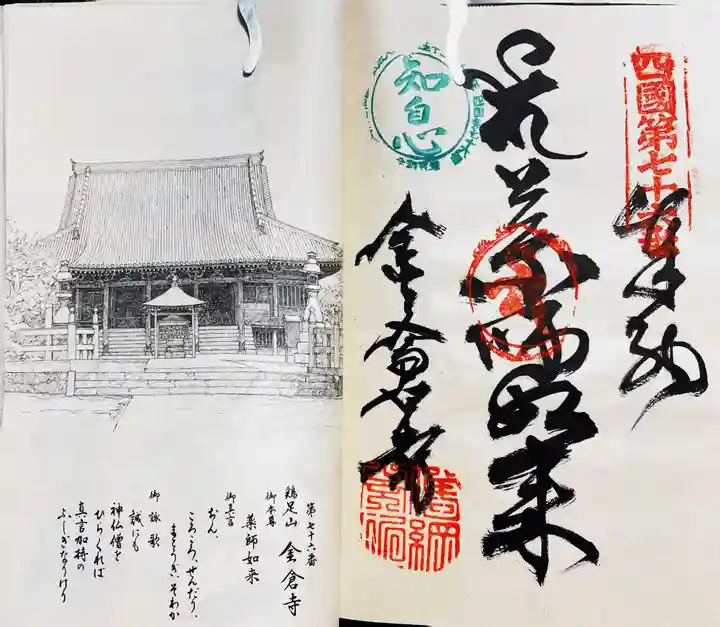 四國第七十六番
奉納
薬師如来
金倉寺
知自心
第七十六番
鶏足山 金倉寺
御本尊
薬師如来
御真言
おん、
ころころ、せんだり、
まとうぎ、そわか
御詠歌
誠にも
神仏僧を
ひらくれば
真言加持の
ふしぎなりけり